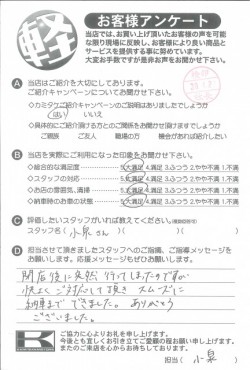 軽
お客様アンケート
当店では、お買い上げ頂いたお客様の声を可能
な限り現場に反映し、お客様により良い商品と
サービスを提供する事に努めています。
大変お手数ですが是非お声をお聞かせ下さい。
A 当店はご紹介を大切にしております。
ご紹介キャンペーンについてお聞かせ下さい。
◇カミタウご紹介キャンペーンのご説明はありましたでしょうか
はい いいえ
◇具体的にご紹介頂ける方とのご関係をお聞かせ頂けますでしょうか
ご親族 ご友人 職場の方 機会があれば紹介したい
B 当店を実際にご利用になった印象をお聞かせ下さい。
◇総合的な満足度 5.大満足 4.満足 3.ふつう 2.やや不満 1.不満
◇スタッフの対応 5.大満足 4.満足 3.ふつう 2.やや不満 1.不満
◇お店の雰囲気、清掃 5.大満足 4.満足 3.ふつう 2.やや不満 1.不満
◇納車時のお車の状態 5.大満足 4.満足 3.ふつう 2.やや不満 1.不満
C 評価したいスタッフがいれば教えてください。
スタッフ名( 小泉さん )
D 担当させて頂きましたスタッフへのご指摘、ご指導メッセージを
お願いします。応援メッセージもぜひお願いします。
閉店後に突然行ってしまったのですが
快よくご対応して頂き スムーズに
納車までできました。ありがとう
ございました。
K
ご協力に心よりお礼を申し上げます。
今後とも宜しくお引き立てご愛顧の程お願い申し上げます。
またのご来店を心からお待ちしております。
担当( 小泉 )